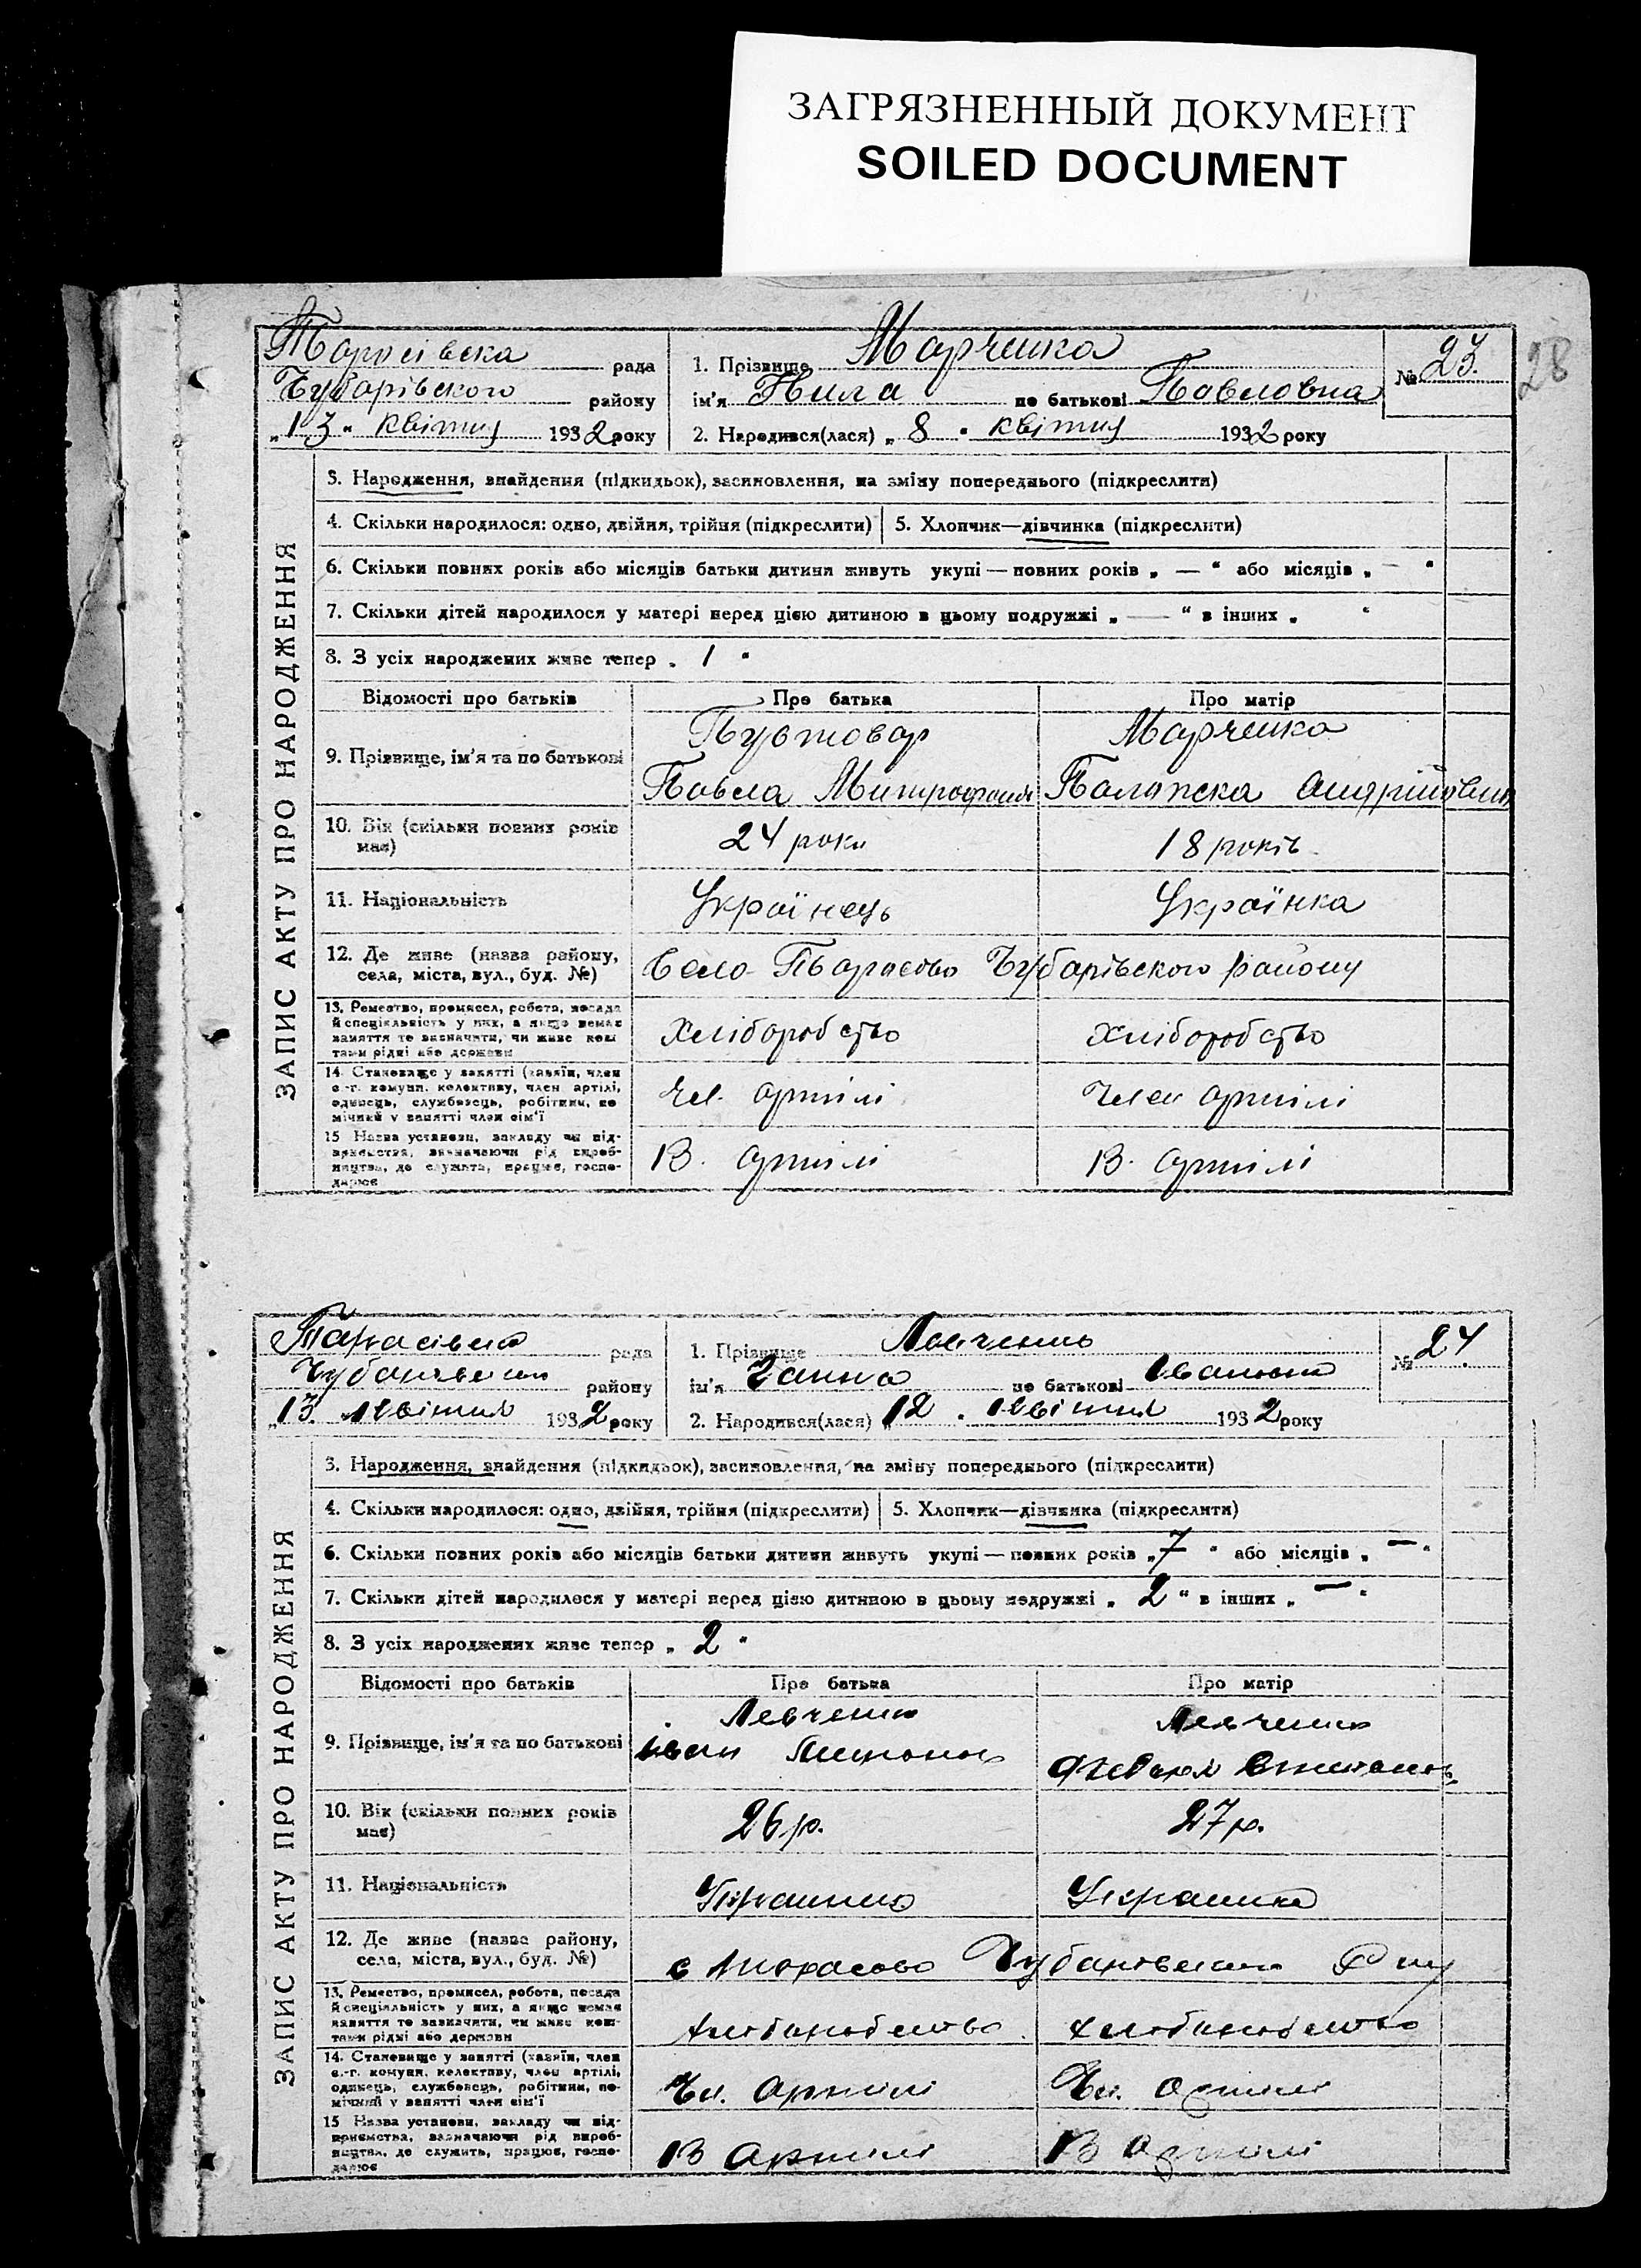 ЗАГРЯЗНЕННЫЙ ДОКУМЕНТ
SOILED DOCUMENT
28
Тарасівска рада
Чубарівского району
„13“ квітня 1932 року
1. Прізвище Марченко
ім'я Нила по батькові Павловна
2. Народився(лася) „8“ квітня 1932 року
№ 23.
ЗАПИС АКТУ ПРО НАРОДЖЕННЯ
3. Народження, знайдення (підкидьок), засиновлення, на зміну попереднього (підкреслити)
4. Скільки народилося: одно, двійня, трійня (підкреслити) 5. Хлопчик—дівчинка (підкреслити)
6. Скільки повних років або місяців батьки дитини живуть укупі — повних років „ — “ або місяців „ — “
7. Скільки дітей народилося у матері перед цією дитиною в цьому подружжі „ — “ в інших „ “
8. З усіх народжених живе тепер „ 1 “
Відомості про батьків Про батька Про матір
9. Прізвище, ім'я та по батькові
Пустовар Марченко
Павла Палажка Андріївна
10. Вік (скільки повних років має) 24 роки 18 років
11. Національність Українець Українка
12. Де живе (назва району, села, міста, вул., буд. №) Село Тарасово Чубарівского району
13. Ремество, промисел, робота, посада й спеціяльність у них, а якщо немає заняття то визначити, чи живе коштами рідні або держави
Хліборобство Хліборобство
14. Становище у занятті (хазяїн, член с.-г. комуни, колективу, член артілі, одинець, службовець, робітник, помічний у занятті член сім'ї
Чл. артілі Член артілі
15 Назва установи, закладу чи підприємства, зазначаючи рід виробництва, де служить, працює, господарює
В. артілі В. артілі
Тарасівска рада
району
„13. квітня 1932 року
1. Прізвище Левченко
ім'я Ганна по батькові Івановна
2. Народився(лася) „12 „ квітня 1932 року
№ 24.
ЗАПИС АКТУ ПРО НАРОДЖЕННЯ
3. Народження, знайдення (підкидьок), засиновлення, на зміну попереднього (підкреслити)
4. Скільки народилося: одно, двійня, трійня (підкреслити) 5. Хлопчик—дівчинка (підкреслити)
6. Скільки повних років або місяців батьки дитини живуть укупі — повних років „ 7 “ або місяців „ — “
7. Скільки дітей народилося у матері перед цією дитиною в цьому подружжі „ 2 “ в інших „ — “
8. З усіх народжених живе тепер „ 2 “
Відомості про батьків Про батька Про матір
9. Прізвище, ім'я та по батькові
Левченко Левченко
Іван
10. Вік (скільки повних років має) 26 р. 27 р.
11. Національність Украинец Украинка
12. Де живе (назва району, села, міста, вул., буд. №) с Тарасово
13. Ремество, промисел, робота, посада й спеціяльність у них, а якщо немає заняття то зазначити, чи живе коштами рідні або держави
14. Становище у занятті (хазяїн, член с.-г. комуни, колективу, член артілі, одинець, службовець, робітник, помічний у занятті член сім'ї
Чл. артілі Чл. артілі
15 Назва установи, закладу чи підприємства, зазначаючи рід виробництва, де служить, працює, господарює
В артілі В артілі